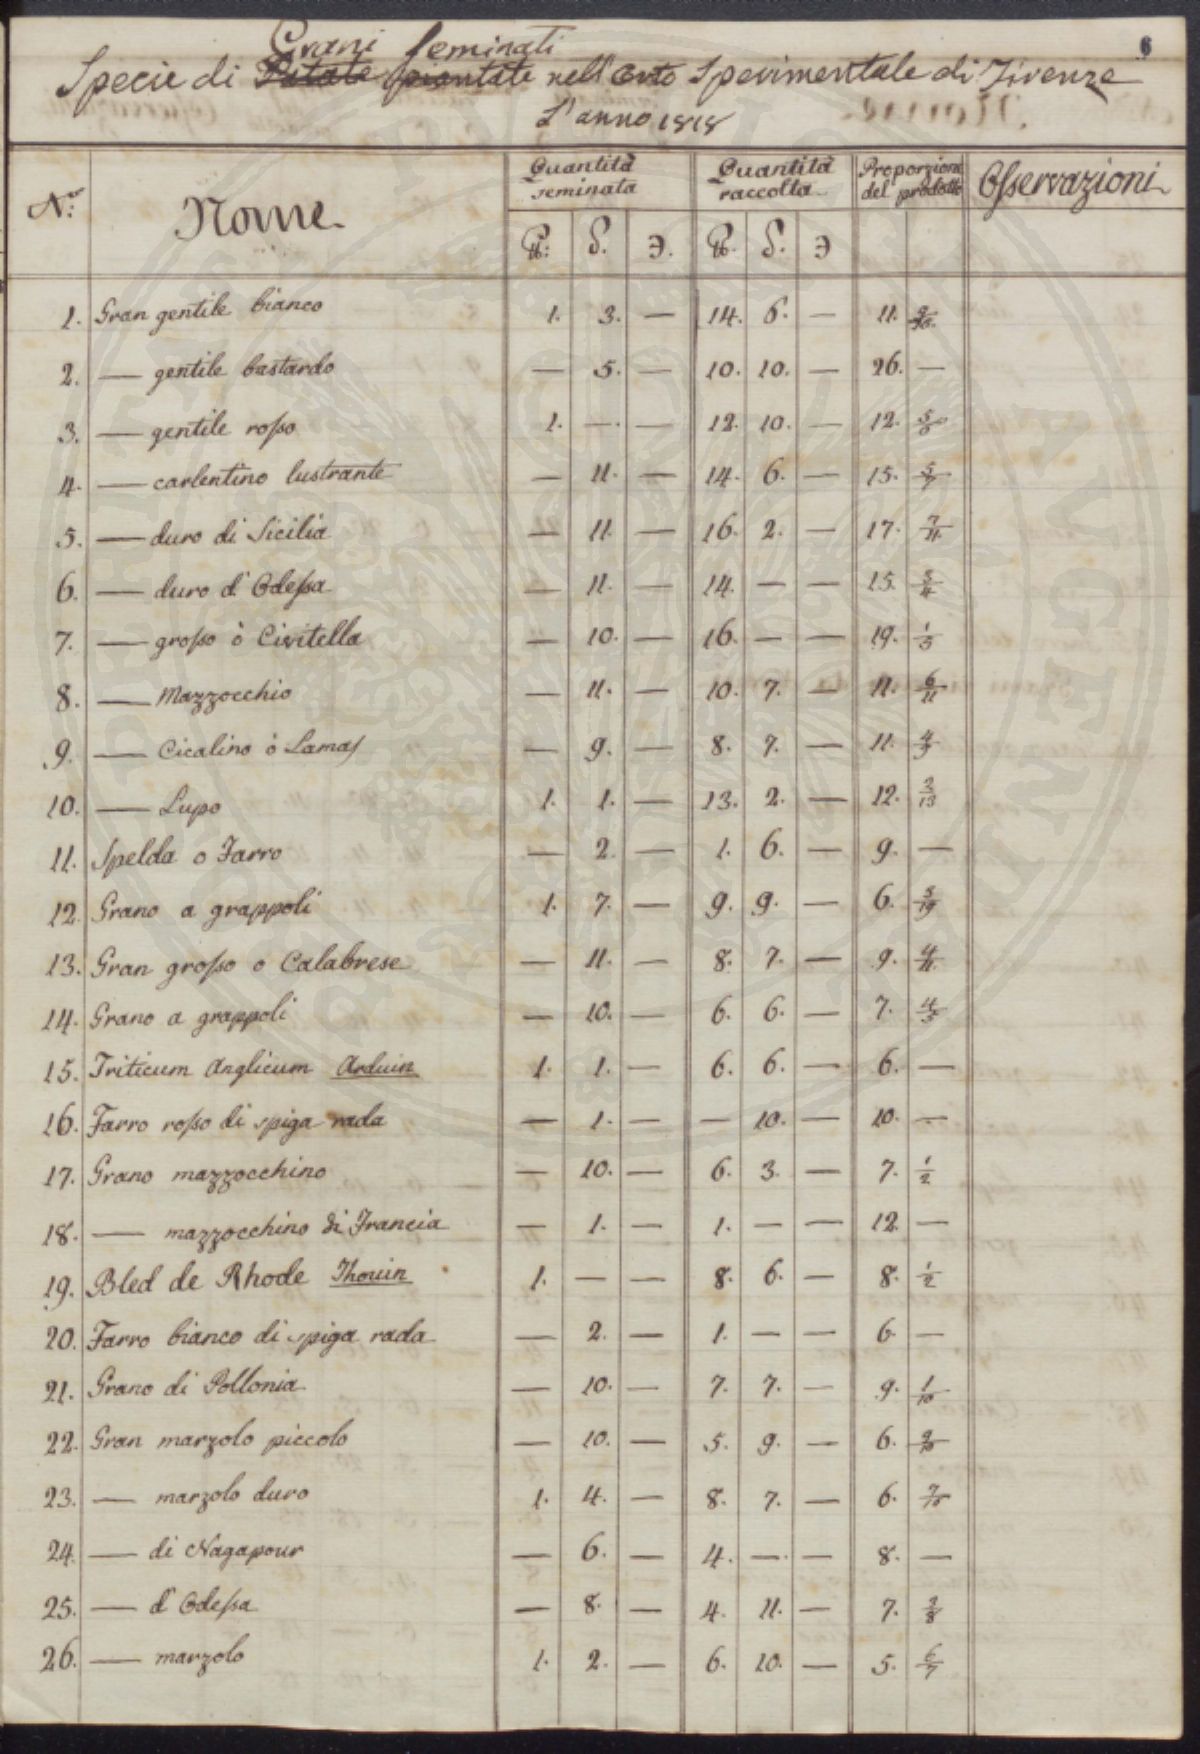 6
Grani seminati
Specie di Patate piantate nell'Orto Sperimentale di Firenze
L'anno 1818
N.º Nome Quantità seminata Quantità raccolta Proporzione del prodotto Osservazioni
℔: ∂. Э. ℔. ∂. Э
1. Gran gentile bianco 1. 3. — 14. 6. — 11.
2. — gentile bastardo — 5. — 10. 10. — 26. —
3. — gentile rosso 1. — — 12. 10. — 12. 5/6
4. — carlentino lustrante — 11. — 14. 6. — 15. 5/7
5. — duro di Sicilia — 11. — 16. 2. — 17. 7/11
6. — duro d'Odessa — 11. — 14. — — 15. 3/11
7. — grosso ò Civitella — 10. — 16. — — 19. 1/5
8. — Mazzocchio — 11. — 10. 7. — 11. 6/11
9. — Cicalino ò Lamas — 9. — 8. 7. — 11. 4/9
10. — Lupo 1. 1. — 13. 2. — 12. 2/13
11. Spelda o Farro — 2. — 1. 6. — 9. —
12. Grano a grappoli 1. 7. — 9. 9. — 6. 3/19
13. Gran grosso o Calabrese — 11. — 8. 7. — 9. 4/11
14. Grano a grappoli — 10. — 6. 6. — 7. 4/5
15. Triticum Anglicum Arduin 1. 1. — 6. 6. — 6. —
16. Farro rosso di spiga rada — 1. — — 10. — 10. —
17. Grano mazzocchino — 10. — 6. 3. — 7. 1/2
18. — mazzocchino di Francia — 1. — 1. — — 12. —
19. Bled de Rhode Thouin 1. — — 8. 6. — 8. 1/2
20. Farro bianco di spiga rada — 2. — 1. — — 6. —
21. Grano di Pollonia — 10. — 7. 7. — 9. 1/10
22. Gran marzolo piccolo — 10. — 5. 9. — 6. 9/10
23. — marzolo duro 1. 4. — 8. 7. — 6. 7/16
24. — di Nagapour — 6. — 4. — — 8. —
25. — d'Odessa — 8. — 4. 11. — 7. 3/8
26. — marzolo 1. 2. — 6. 10. — 5. 6/7